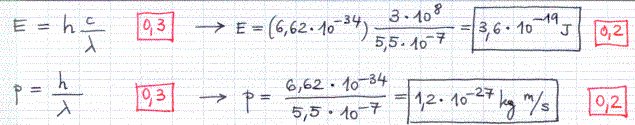 E = h c/λ 0,3 → E = (6,62 · 10⁻³⁴) 3 · 10⁸ / 5,5 · 10⁻⁷ = 3,6 · 10⁻¹⁹ J 0,2
p = h/λ 0,3 → p = 6,62 · 10⁻³⁴ / 5,5 · 10⁻⁷ = 1,2 · 10⁻²⁷ kg m/s 0,2